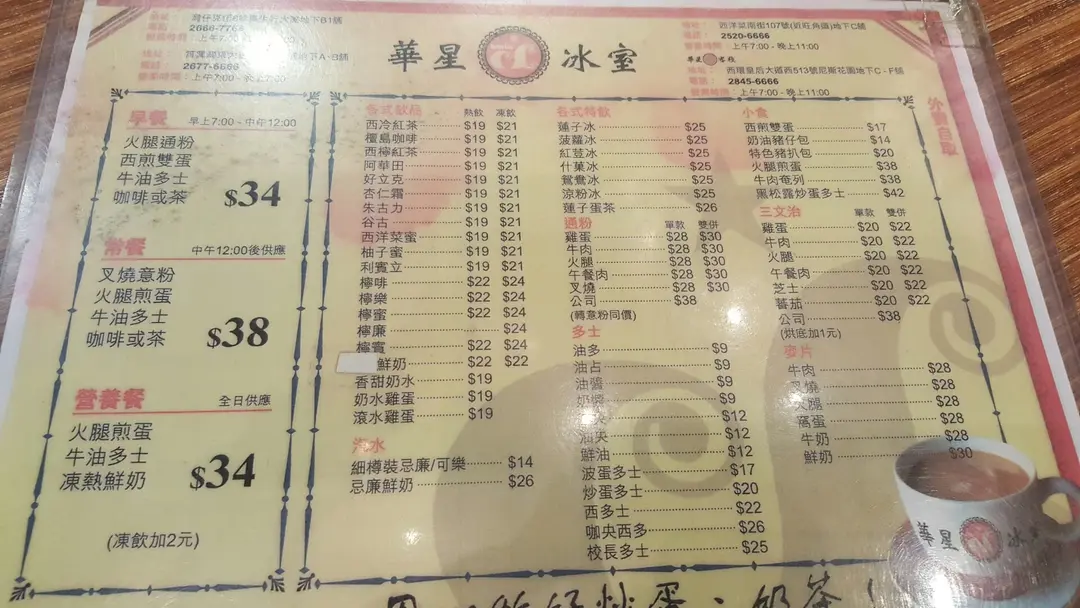 2666-77
上午7:00
2677-6666
地下A-B舖
上午7:00 - 晚上11:00
華星 冰室
西洋菜南街107號(近旺角道)地下C舖
2520-6666
上午7:00 - 晚上11:00
西環皇后大道西513號尼斯花園地下C-F舖
2845-6666
上午7:00 - 晚上11:00
外賣自取
早餐 早上7:00 - 中午12:00
火腿通粉
西煎雙蛋
牛油多士
咖啡或茶
$34
常餐 中午12:00後供應
叉燒意粉
火腿煎蛋
牛油多士
咖啡或茶
$38
營養餐 全日供應
火腿煎蛋
牛油多士
凍熱鮮奶
$34
(凍飲加2元)
各式飲品 熱飲 凍飲
西冷紅茶 $19 $21
檀島咖啡 $19 $21
西檸紅茶 $19 $21
阿華田 $19 $21
好立克 $19 $21
杏仁霜 $19 $21
朱古力 $19 $21
谷古 $19 $21
西洋菜蜜 $19 $21
柚子蜜 $19 $21
利賓立 $19 $21
檸啡 $22 $24
檸樂 $22 $24
檸蜜 $22 $24
檸廉 $24
檸賓 $22 $24
鮮奶 $22 $22
香甜奶水 $19
奶水雞蛋 $19
滾水雞蛋 $19
汽水
細樽裝忌廉/可樂 $14
忌廉鮮奶 $26
各式特飲
蓮子冰 $25
菠蘿冰 $25
紅荳冰 $25
什菓冰 $25
鴛鴦冰 $25
涼粉冰 $25
蓮子蛋茶 $26
通粉 單款 雙併
雞蛋 $28 $30
牛肉 $28 $30
火腿 $28 $30
午餐肉 $28 $30
叉燒 $28 $30
公司 $38
(轉意粉同價)
多士
油多 $9
油占 $9
油醬 $9
$9
$12
油夾 $12
鮮油 $12
波蛋多士 $17
炒蛋多士 $20
西多士 $22
咖央西多 $26
校長多士 $25
小食
西煎雙蛋 $17
奶油豬仔包 $14
特色豬扒包 $20
火腿煎蛋 $38
牛肉奄列 $38
黑松露炒蛋多士 $42
三文治 單款 雙併
雞蛋 $20 $22
牛肉 $20 $22
火腿 $20 $22
午餐肉 $20 $22
芝士 $20 $22
蕃茄 $20 $22
公司 $38
(烘底加1元)
麥片
牛肉 $28
叉燒 $28
火腿 $28
窩蛋 $28
牛奶 $28
鮮奶 $30
華星 冰
炒蛋、奶茶!